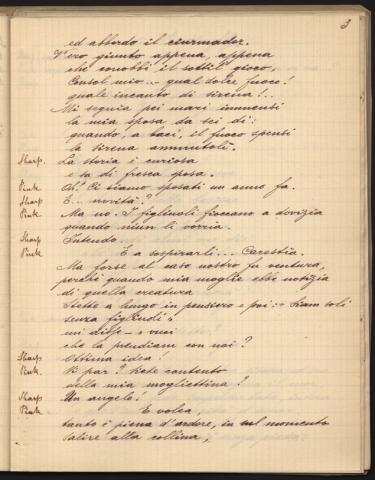 3
ed abbordo il ciurmador.
V'ero giunto appena, appena
che conobbi il sottil gioco,
Consol mio... qual dolce fuoco!
quale incanto di sirena!..
Mi seguia pei mari immensi
la mia sposa da sei dì:
quando, a baci, il fuoco spensi
la sirena ammutolì.
Sharp. La storia è curiosa
e sa di fresca sposa.
Pink. Oh! Ci siamo sposati un anno fa.
Sharp E... novità?
Pink. Ma no. I figliuoli fioccano a dovizia
quando niun li vorria.
Sharp Intendo...
Pink. E a sospirarli... Carestia.
Ma forse al caso nostro fu ventura,
perchè quando mia moglie ebbe notizia
di quella creatura
stette a lungo in pensiero e poi: Siam soli
senza figliuoli"
mi disse — e vuoi
che la prendiam con noi?
Sharp Ottima idea!
Pink. Vi par? Siete contento
della mia mogliettina?
Sharp Un angelo!
Pink. E volea,
tanto è piena d'ardore, in sul momento
salire alla collina,